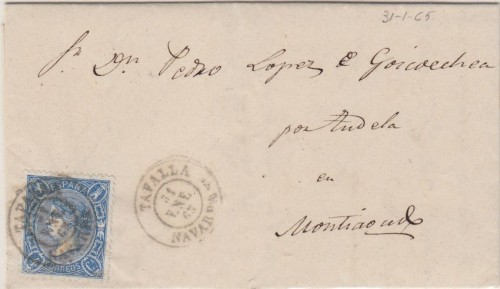 31-1-65
Sr. Dn. Pedro Lopez
por Tudela
en
TAFALLA
31
ENE
65
NAVARRA
ESPAÑA
CORREOS